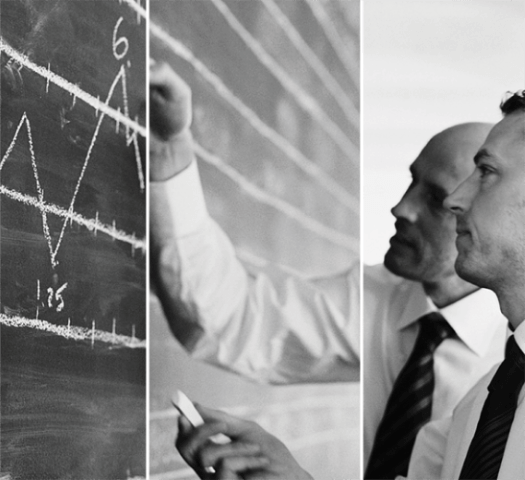 6
1.25